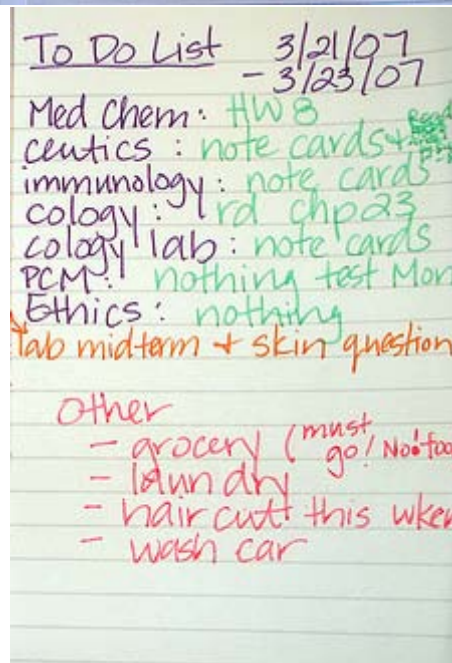 To Do List 3/21/07
- 3/23/07
Med Chem: HW 8
ceutics : note cards +
immunology: note cards
cology: rd chp 23
cology lab: note cards
PCM: nothing test Mon
Ethics: nothing
lab midterm + skin question
Other
- grocery (must go! No foo
- laundry
- hair cut! this wke
- wash car